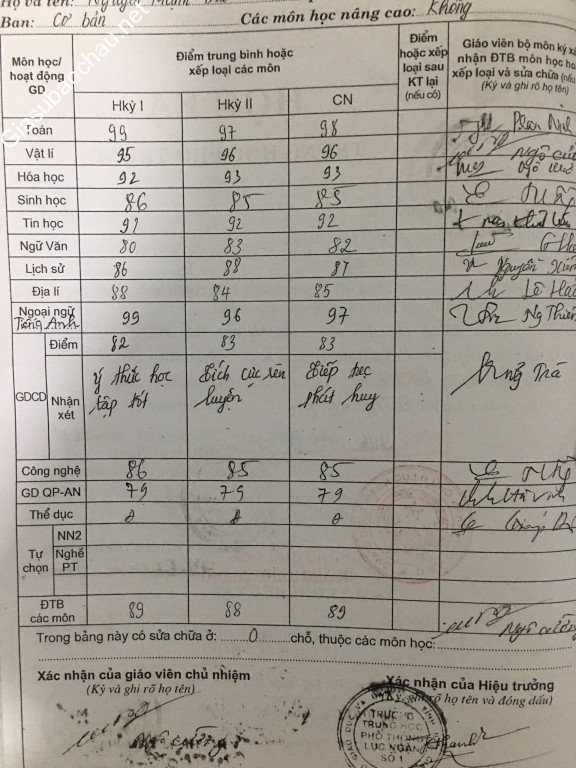 Họ và tên: Nguyễn Mạnh
Ban: Cơ bản Các môn học nâng cao: Không
Môn học/ hoạt động GD
Điểm trung bình hoặc xếp loại các môn
Điểm hoặc xếp loại sau KT lại (nếu có)
Giáo viên bộ môn ký xá
nhận ĐTB môn học hoặ
xếp loại và sửa chữa (nếu
(Ký và ghi rõ họ tên)
Hkỳ I Hkỳ II CN
Toán 99 97 98
Vật lí 95 96 96
Hóa học 92 93 93
Sinh học 86 85 85
Tin học 91 92 92
Ngữ Văn 80 83 82
Lịch sử 86 88 87 Nguyễn
Địa lí 88 84 85 Lê
Ngoại ngữ
Tiếng Anh 99 96 97 Ng Thiên
GDCD Điểm 82 83 83
Nhận xét
ý thức học tập tốt
Tích cực rèn luyện
Tiếp tục phát huy
Trà
Công nghệ 86 85 85
GD QP-AN 79 79 79
Thể dục
Tự chọn
NN2
Nghề PT
ĐTB các môn 89 88 89
Ngô Cường
Trong bảng này có sửa chữa ở: 0 chỗ, thuộc các môn học:
Xác nhận của giáo viên chủ nhiệm
(Ký và ghi rõ họ tên)
Xác nhận của Hiệu trưởng
(Ký, ghi rõ họ tên và đóng dấu)
Ngô Cường
TRƯỜNG
TRUNG HỌC
PHỔ THÔNG
LỤC NGẠN
SỐ 1
Giasubaochau.net